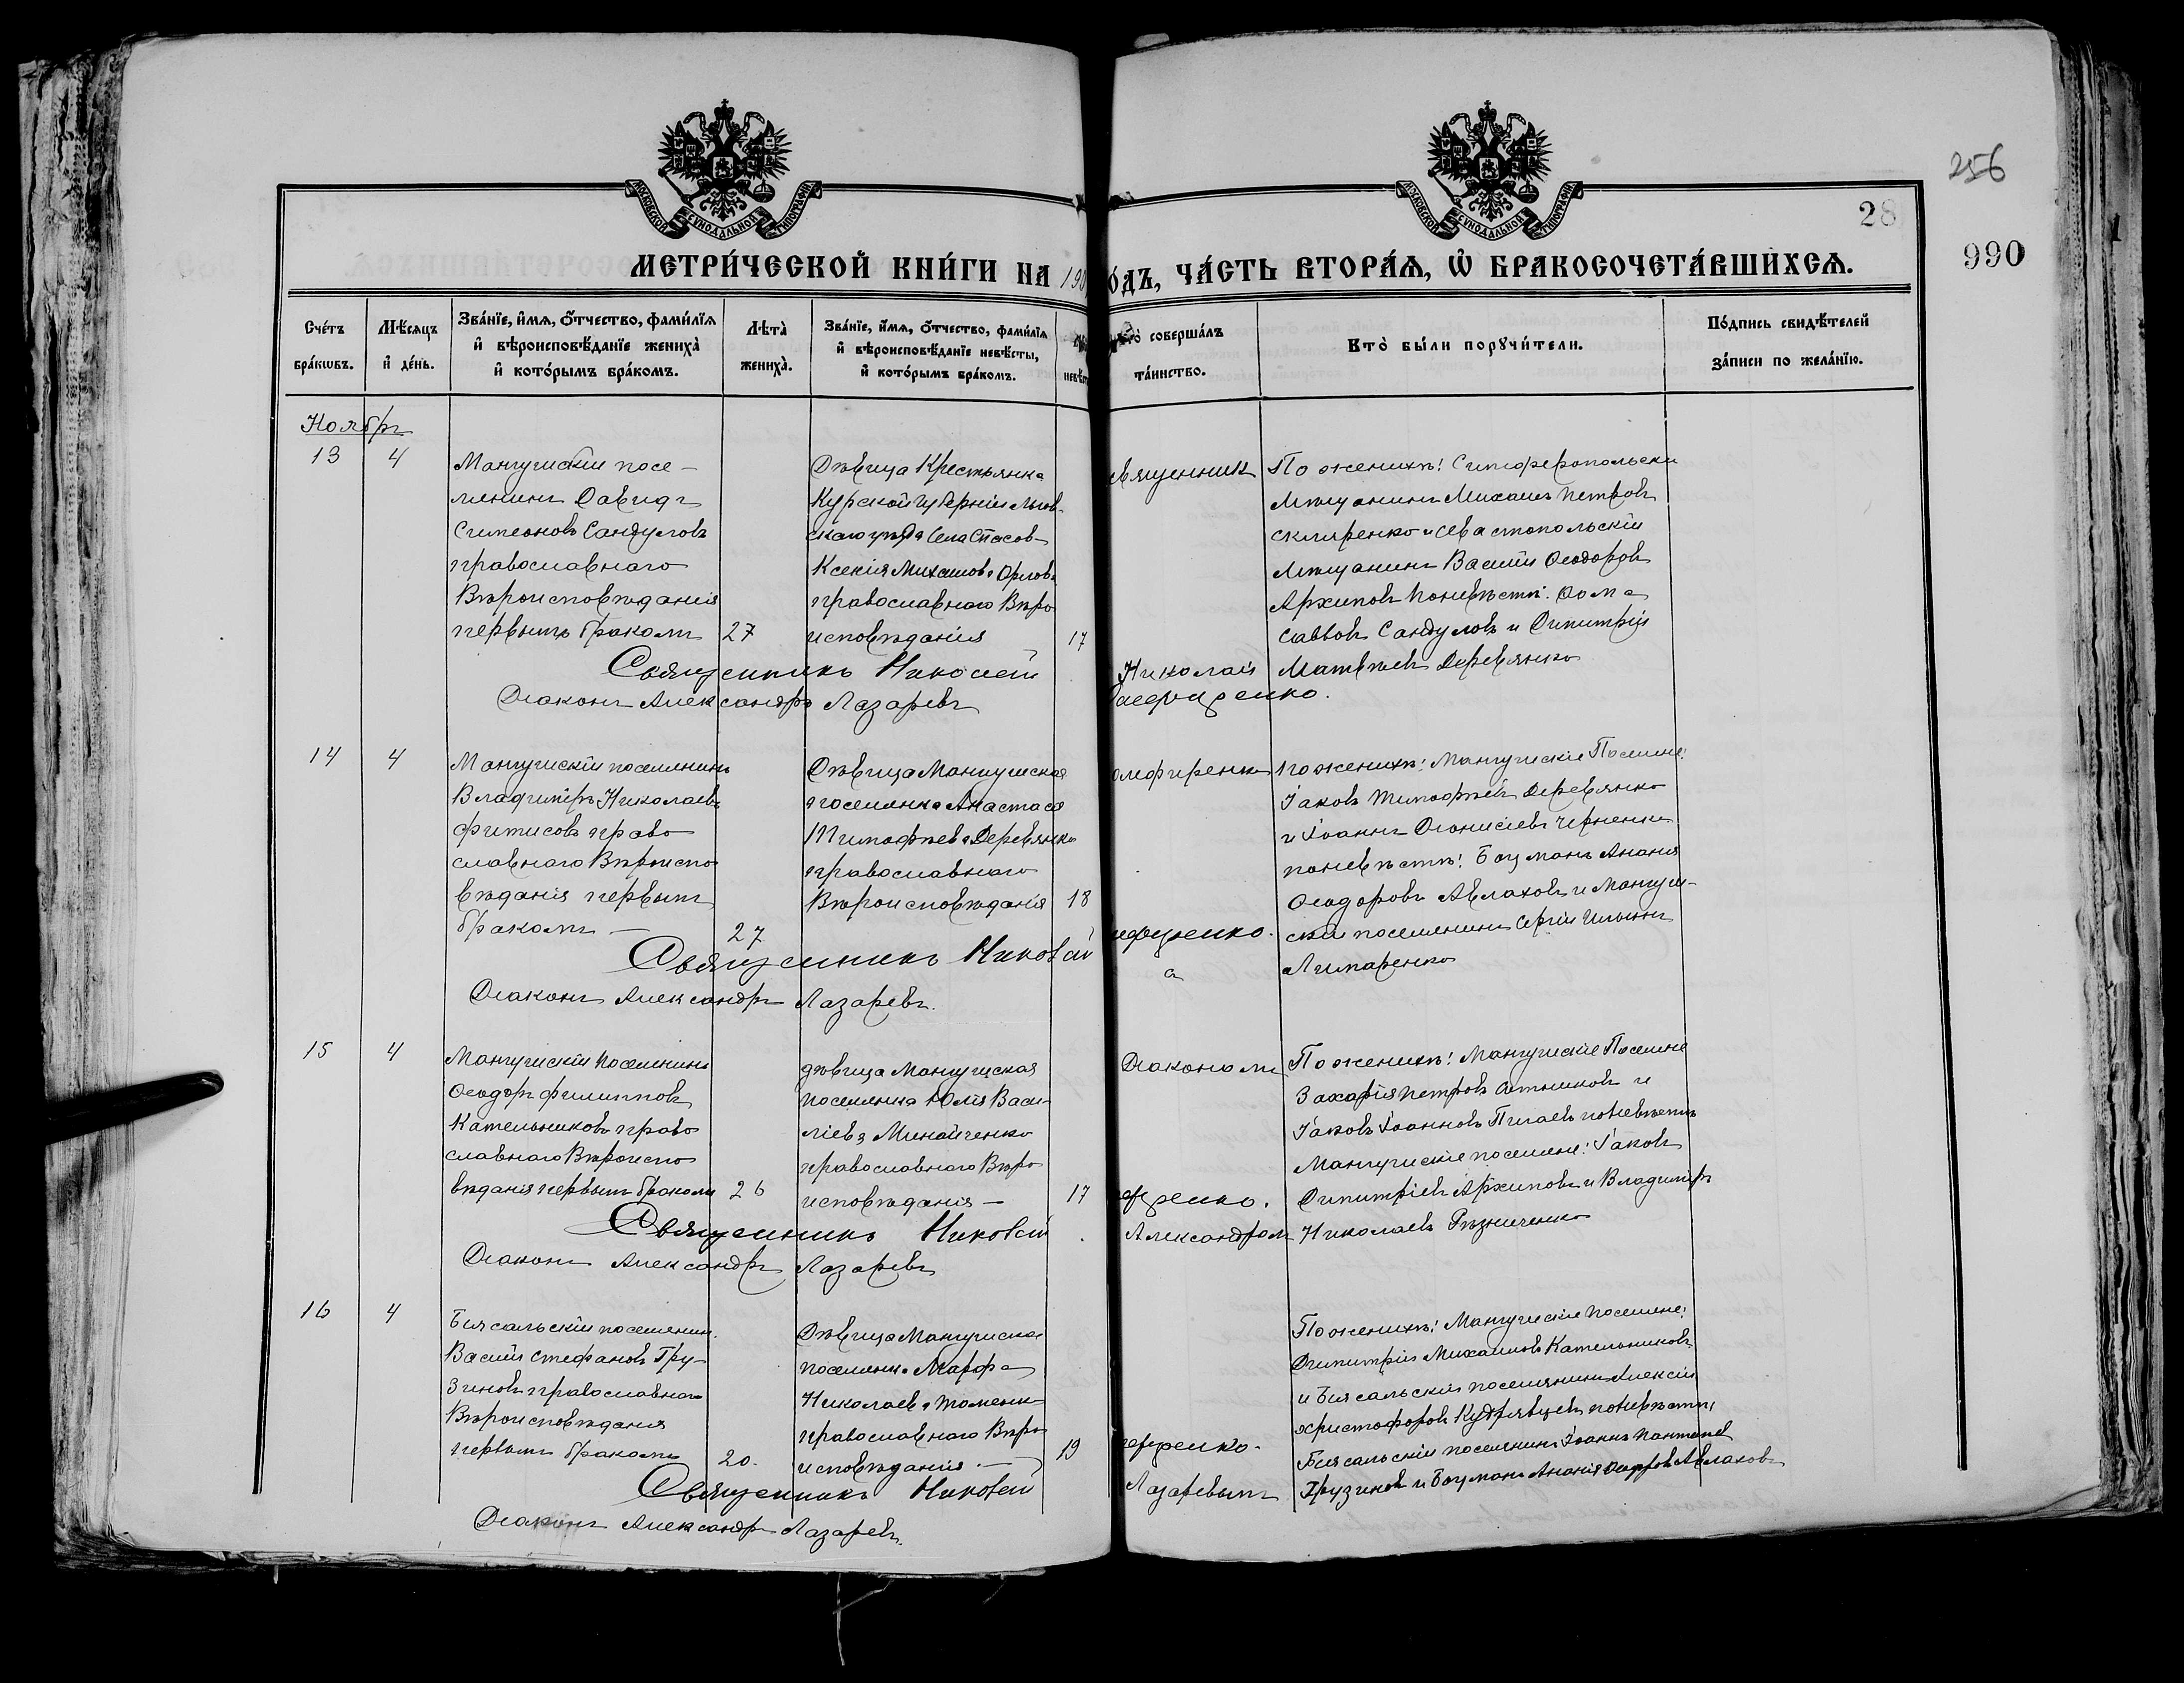 256
28
990
МОСКОВСКОЙ СѴНОДАЛЬНОЙ ТИПОГРАФІИ
МОСКОВСКОЙ СѴНОДАЛЬНОЙ ТИПОГРАФІИ
МЕТРИ́ЧЕСКОЙ КНИ́ГИ НА 190
О́ДЪ, ЧА́СТЬ ВТОРА́Ѧ, Ѽ БРАКОСОЧЕТА́ВШИХСѦ.
Сче́тъ бра́кѡвъ.
Мѣ́сяцъ и҆ де́нь.
Зва́нїе, и҆́мѧ, ѻ҆́тчество, фами́лїѧ
и҆ вѣроисповѣ́данїе жениха̀
и҆ кото́рымъ бра́комъ.
Лѣта̀ жениха̀.
Зва́нїе, и҆́мѧ, ѻ҆́тчество, фами́лїѧ
и҆ вѣроисповѣ́данїе невѣ́сты,
и҆ кото́рымъ бра́комъ.
то̀ соверша́лъ
та́инство.
Кто̀ бы́ли порꙋчи́тели.
По́дпись свидѣ́телей
за́писи по жела́нїю.
Ноябрь
13
4
Мангушскій посе-
лянинъ Давидъ
Симеоновъ Сандуловъ
православнаго
Вѣроисповѣданія
первымъ бракомъ
27
Дѣвица Крестьянка
Курской губерніи Льгов-
скаго уѣзда Села Спасов-
Ксенія Михаилова Орлова
православнаго Вѣро
исповѣданія
17
Священник
Николай
По женихѣ: Симферопольски
Мѣщанинъ Михаилъ Петровъ
Скляренко и Севастопольскій
Мѣщанинъ Василій Ѳеодоровъ
Архиповъ По невѣстѣ: Ѳома
Саввовъ Сандуловъ и Димитрій
Матвѣевъ Деревянко
Священникъ Николай
Діаконъ Александръ Лазаревъ
14
4
Мангушскій поселянинъ
Владиміръ Николаевъ
Фитисовъ право
славнаго Вѣроиспо
вѣданія первымъ
бракомъ —
27
Дѣвица Мангушская
поселянка Анастасія
Тимофѣева Деревянко
православнаго
Вѣроисповѣданія
18
По женихѣ: Мангушскіе Поселяне:
Іаковъ Тимофѣевъ Деревянко
и Іоаннъ Діонисіевъ Черненко
по невѣстѣ: Боцманъ Ананія
Ѳеодоровъ Авлаховъ и Мангуш-
скій поселянинъ Сергій Ильинъ
Лимаренко
Священникъ Николай
Діаконъ Александръ Лазаревъ.
15
4
Мангушскій Поселянинъ
Ѳеодоръ Филипповъ
Кательниковъ право
славнаго Вѣроиспо
вѣданія первымъ бракомъ
26
дѣвица Мангушская
поселянка Юлія Васи-
ліева Минайченко
православнаго Вѣро
исповѣданія —
17
Діакономъ
Александромъ
По женихѣ: Мангушскіе Поселяне
Захарія Петровъ Ситниковъ и
Іаковъ Іоанновъ Пигаевъ по невѣстѣ
Мангушскіе поселяне: Іаковъ
Димитріевъ Архиповъ и Владиміръ
Николаевъ Рѣзниченко
Священникъ Николай
Діаконъ Александръ Лазаревъ
16
4
Біясальскій поселянин.
Василій Стефановъ Гру-
зиновъ православнаго
Вѣроисповѣданія
первымъ бракомъ
20.
Дѣвица Мангушская
поселянка Марфа
Николаева
православнаго Вѣро
исповѣданія —
19
Лазаревымъ
По женихѣ: Мангушскіе поселяне:
Димитрій Михаиловъ Кательниковъ
и Біясальскій поселянинъ Алексій
Христофоровъ Кудрявцевъ по невѣстѣ:
Біясальскій поселянинъ Іоаннъ
Грузиновъ и Боцманъ Ананія Ѳеодоровъ Авлаховъ
Священникъ Николай
Діаконъ Александръ Лазаревъ.